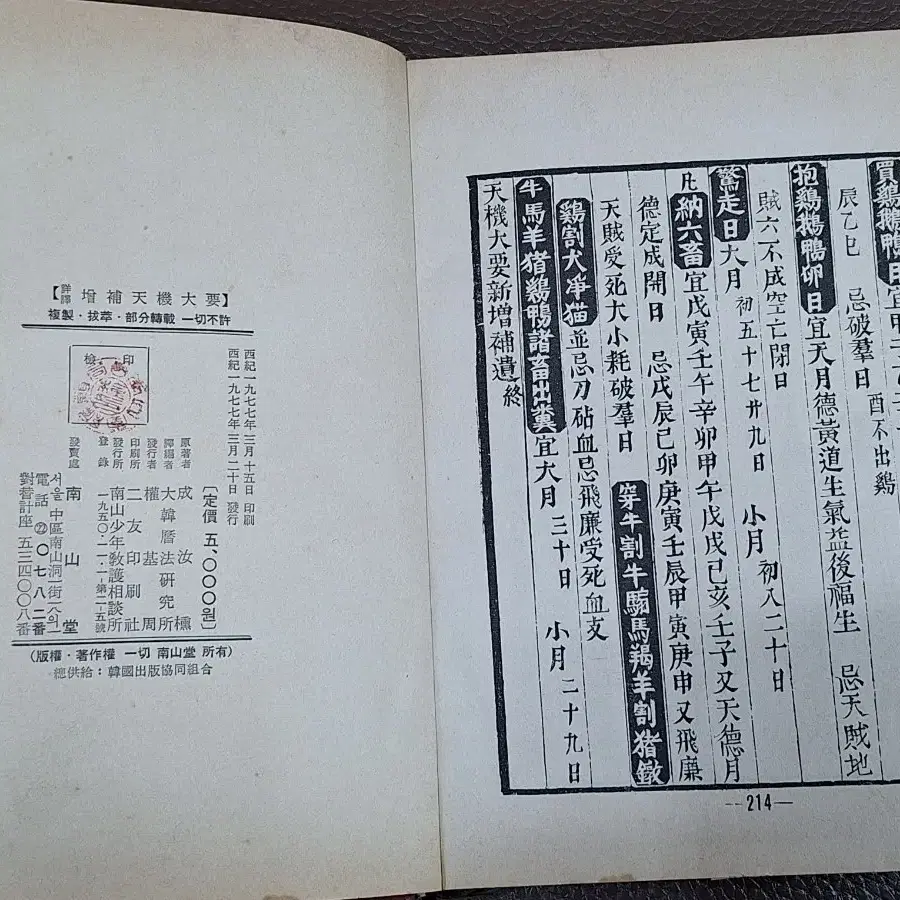 買鷄鵝鴨日宜甲子
辰乙巳 忌破羣日 酉不出鷄
抱鷄鵝鴨卵日宜天月德黃道生氣益後福生 忌天賊地
賊六不成空亡閉日
驚走日大月 初五十七廿九日 小月 初八二十日
凡納六畜宜戊寅壬午辛卯甲午戊戌己亥壬子又天德月
德定成開日 忌戊辰己卯庚寅壬辰甲寅庚申又飛廉
天賊受死大小耗破羣日 穿牛割牛騸馬羯羊割猪鐓
鷄割犬凈猫並忌刀砧血忌飛廉受死血支
牛馬羊猪鷄鴨諸畜出糞宜大月 三十日 小月 二十九日
天機大要新增補遺 終
—214—
【詳譯 增補天機大要】
複製·拔萃·部分轉載 一切不許
檢印
西紀一九七七年三月十五日 印刷
西紀一九七七年三月二十日 發行
〔定價 五,〇〇〇원〕
原著者 成汝櫄
譯編者 大韓曆法硏究所
發行者 權基周
印刷所 二友印刷社
發行所 南山少年敎護相談所
登錄 一九五〇·二·一·第二·五號
發賣處 南山堂
서울 中區南山洞一街一六의一
電話 ㉒ 〇七八二番
對替計座 五三四〇〇八番
(版權·著作權 一切 南山堂 所有)
總供給:韓國出版協同組合